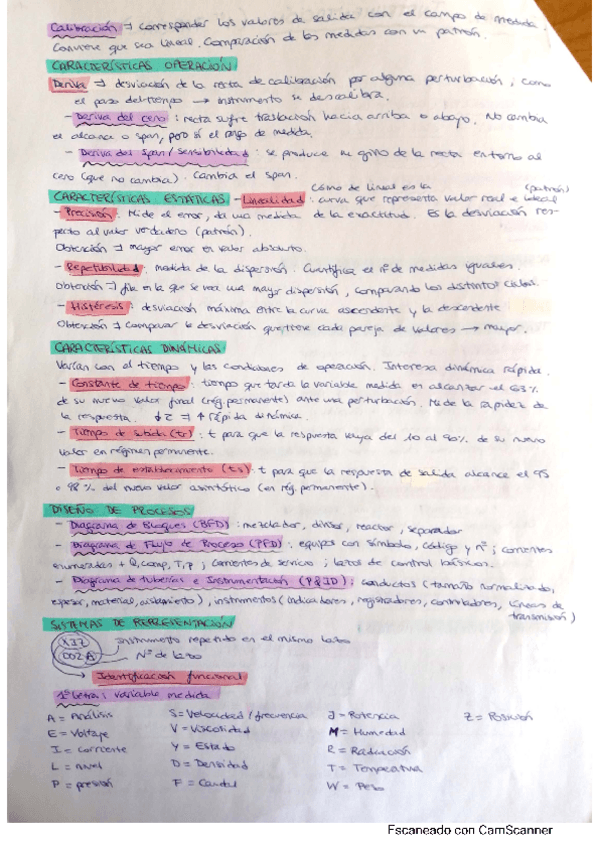 Calibración → corresponder los valores de salida con el campo de medida.
Conviene que sea lineal. Comparación de las medidas con un patrón.
CARACTERÍSTICAS OPERACIÓN
Deriva → desviación de la recta de calibración por alguna perturbación, como
el paso del tiempo → instrumento se descalibra.
- Deriva del cero: recta sufre traslación hacia arriba o abajo. No cambia
el alcance o span, pero sí el rango de medida.
- Deriva del Span/sensibilidad: se produce un giro de la recta en torno al
cero (que no cambia). Cambia el span.
Cómo de lineal es la (patrón)
CARACTERÍSTICAS ESTÁTICAS - Linealidad: curva que representa valor real e ideal
- Precisión: Mide el error, da una medida de la exactitud. Es la desviación res-
pecto al valor verdadero (patrón).
Obtención → mayor error en valor absoluto.
- Repetibilidad: medida de la dispersión. Cuantifica el nº de medidas iguales.
Obtención → fila en la que se vea una mayor dispersión, comparando los distintos ciclos.
- Histéresis: desviación máxima entre la curva ascendente y la descendente
Obtención → comparar la desviación que tiene cada pareja de valores → mayor.
CARACTERÍSTICAS DINÁMICAS
Varían con el tiempo y las condiciones de operación. Interesa dinámica rápida.
- Constante de tiempo: tiempo que tarda la variable medida en alcanzar el 63%
de su nuevo valor final (rég. permanente) ante una perturbación. Mide la rapidez de
la respuesta. ↓ τ → ↑ rápida dinámica.
- Tiempo de subida (tr): t para que la respuesta vaya del 10 al 90% de su nuevo
valor en régimen permanente.
- Tiempo de establecimiento (ts): t para que la respuesta de salida alcance el 95
o 98% del nuevo valor asintótico (en rég. permanente).
DISEÑO DE PROCESOS
- Diagrama de Bloques (BFD): mezclador, divisor, reactor, separador
- Diagrama de Flujo de Proceso (PFD): equipos con símbolo, código y nº; corrientes
enumeradas + Q, comp, T, p; corrientes de servicio; lazos de control básicos.
- Diagrama de tuberías e Instrumentación (P&ID): conductos (tamaño normalizado,
espesor, material, aislamiento), instrumentos (indicadores, registradores, controladores, líneas de
transmisión)
SISTEMAS DE REPRESENTACIÓN
Instrumento repetido en el mismo lazo
002 A → Nº de lazo
Identificación funcional
1ª Letra: variable medida
A = Análisis S = Velocidad / frecuencia J = Potencia Z = Posición
E = Voltaje V = Viscosidad M = Humedad
I = Corriente Y = Estado R = Radiación
L = nivel D = Densidad T = Temperatura
P = presión F = Caudal W = Peso
Escaneado con CamScanner